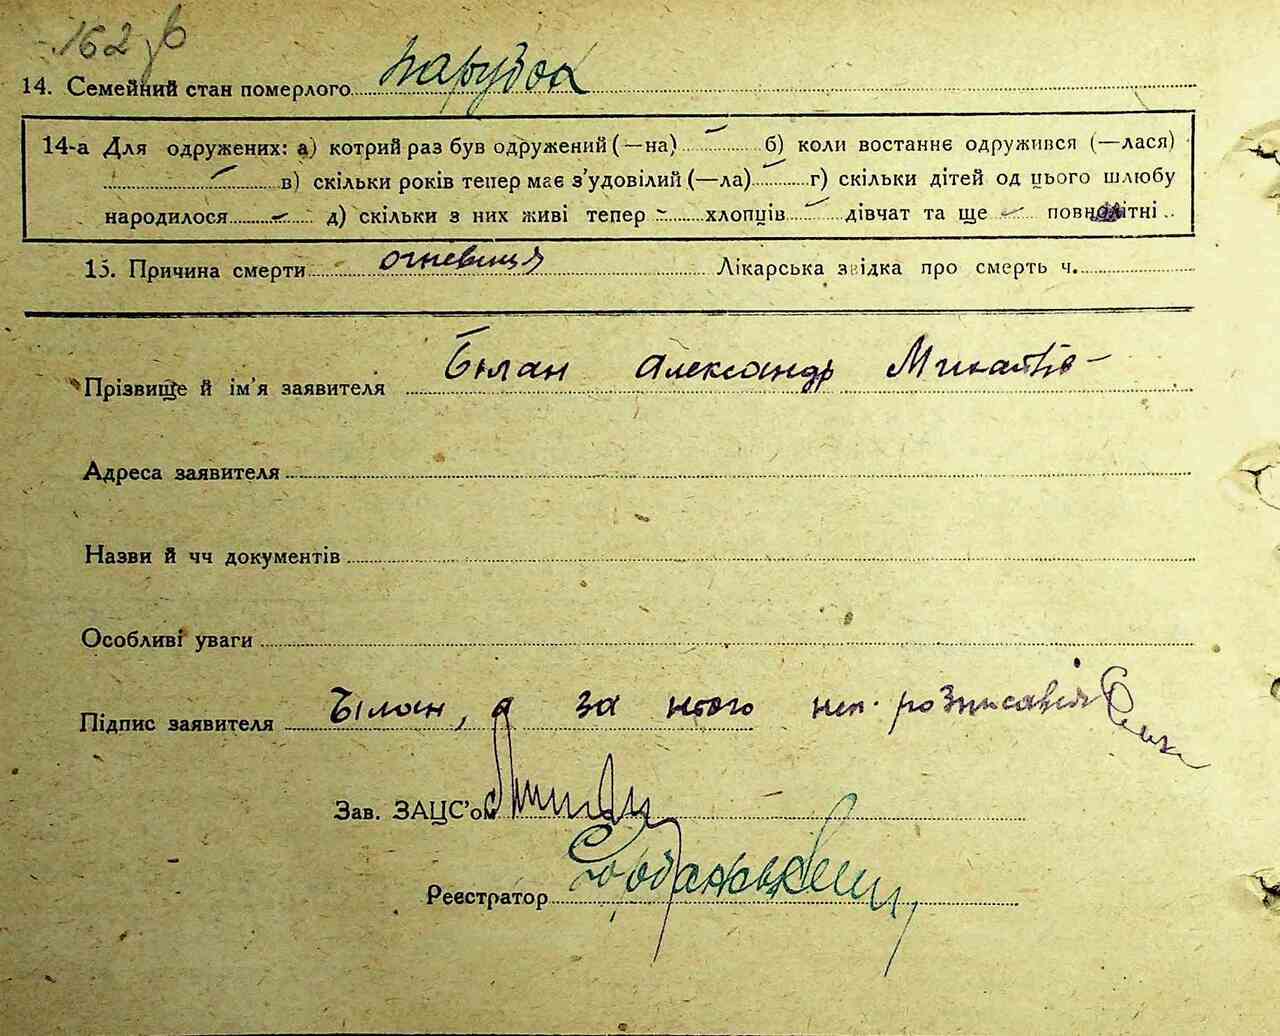 162 зв
14. Семейний стан померлого парубок
14-а Для одружених: а) котрий раз був одружений (—на) — б) коли востаннє одружився (—лася)
— в) скільки років тепер має з'удовілий (—ла) — г) скільки дітей од цього шлюбу
народилося — д) скільки з них живі тепер — хлопців — дівчат та ще — повнолітні
15. Причина смерти огневиця Лікарська звідка про смерть ч.
Прізвище й ім'я заявителя Білан Александр
Адреса заявителя
Назви й чч документів
Особливі уваги
Підпис заявителя Білан, а за нього неп. розписався
Зав. ЗАЦС'ом
Реєстратор